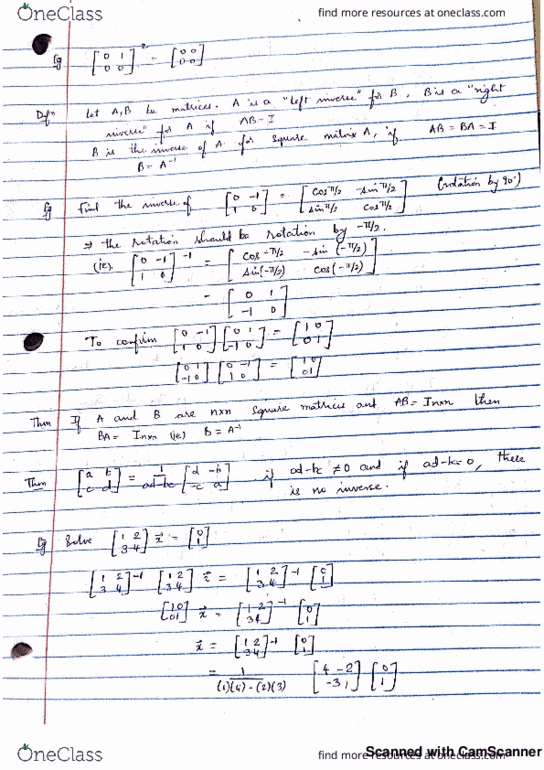 OneClass
find more resources at oneclass.com
Eg [0 1; 0 0]² = [0 0; 0 0]
Defn Let A, B be matrices. A is a "left inverse" for B, B is a "right
inverse" for A if AB = I
B is the inverse of A for square matrix A, if AB = BA = I
B = A⁻¹
Eg Find the inverse of [0 -1; 1 0] = [cos π/2 -sin π/2; sin π/2 cos π/2] (rotation by 90°)
⇒ the rotation should be rotation by -π/2.
(ie) [0 -1; 1 0]⁻¹ = [cos -π/2 -sin (-π/2); sin(-π/2) cos(-π/2)]
= [0 1; -1 0]
To confirm [0 -1; 1 0] [0 1; -1 0] = [1 0; 0 1]
[0 1; -1 0] [0 -1; 1 0] = [1 0; 0 1]
Thm If A and B are nxn square matrices and AB = Inxn then
BA = Inxn (ie) B = A⁻¹
Thm [a b; c d] = 1/ad-bc [d -b; -c a] if ad-bc ≠ 0 and if ad-bc=0, there
is no inverse.
Eg Solve [1 2; 3 4] x⃗ = [0; 1]
[1 2; 3 4]⁻¹ [1 2; 3 4] x⃗ = [1 2; 3 4]⁻¹ [0; 1]
[1 0; 0 1] x⃗ = [1 2; 3 4]⁻¹ [0; 1]
x⃗ = [1 2; 3 4]⁻¹ [0; 1]
= 1/(1)(4) - (2)(3) [4 -2; -3 1] [0; 1]
OneClass
find more resources at oneclass.com
Scanned with CamScanner